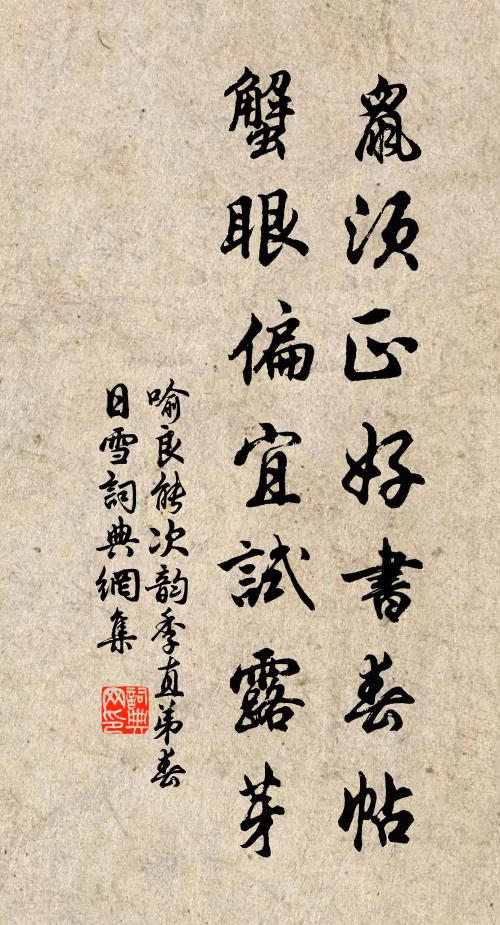 鼠須正好書春帖
蟹眼偏宜試露芽
喻良能次韵季直弟春
日雪詞典網集
詞典网印